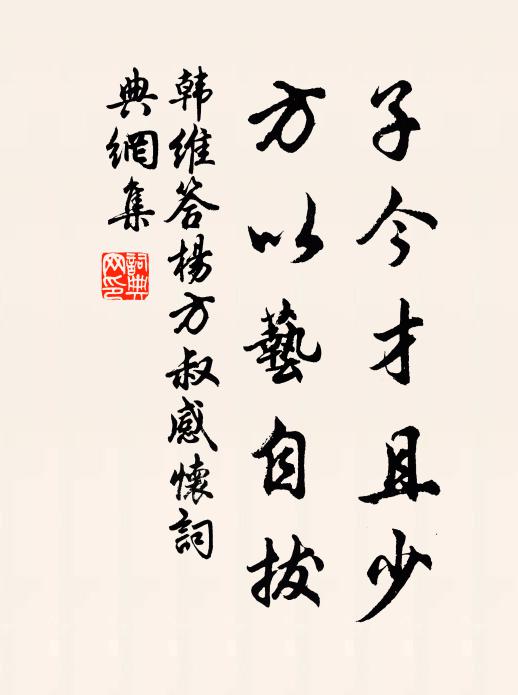 子今才且少
方以藝自拔
韩維答楊方叔感懷詞
典網集
詞典网印